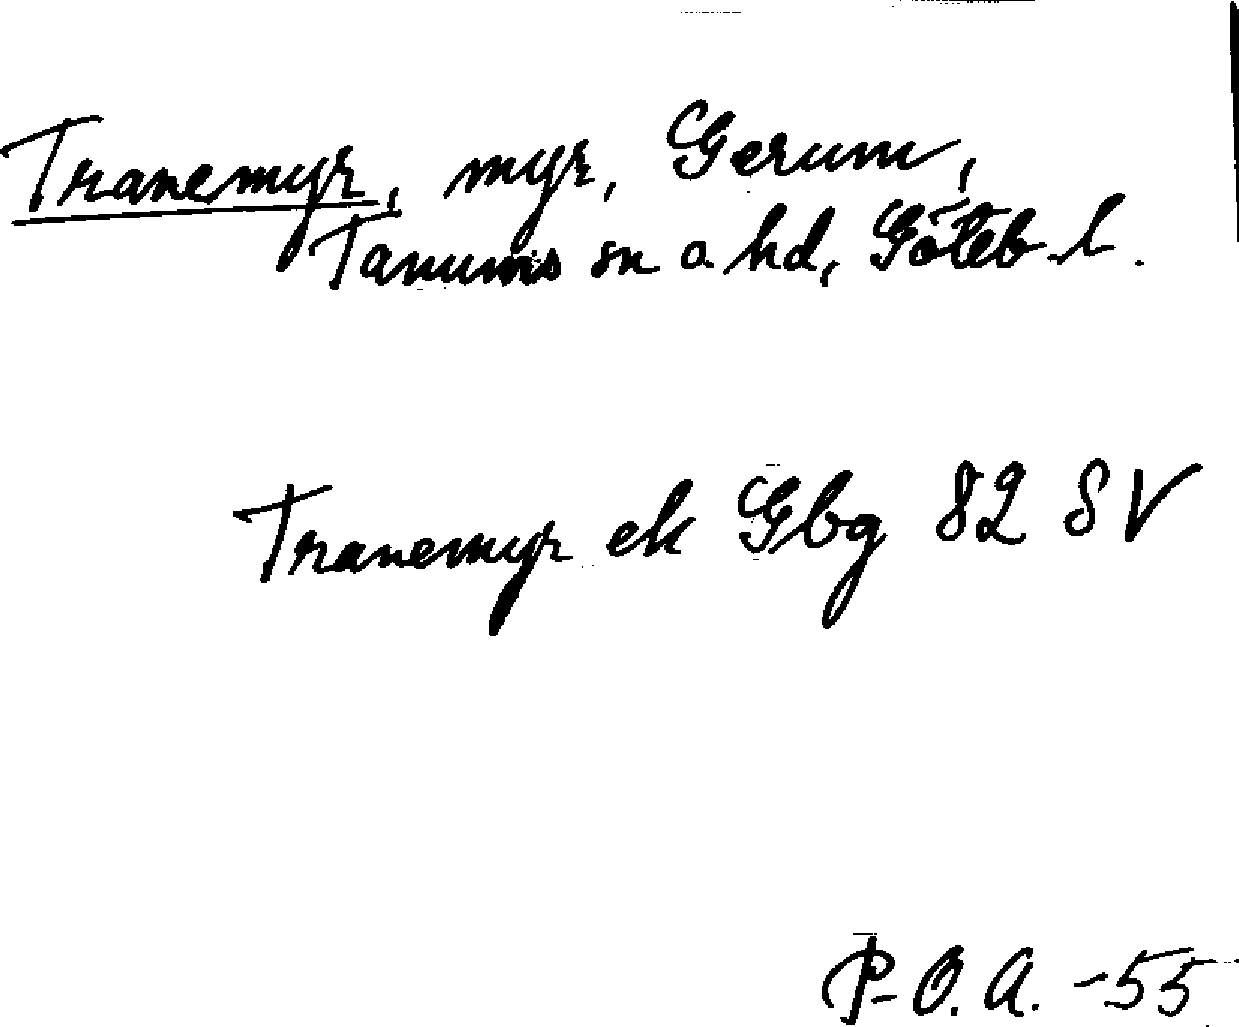 Tranemyr, myr, Gerum,
Tanums sn o hd, Göteb. l.
Tranemyr ek Gbg 82 SV
P-O. A. -55